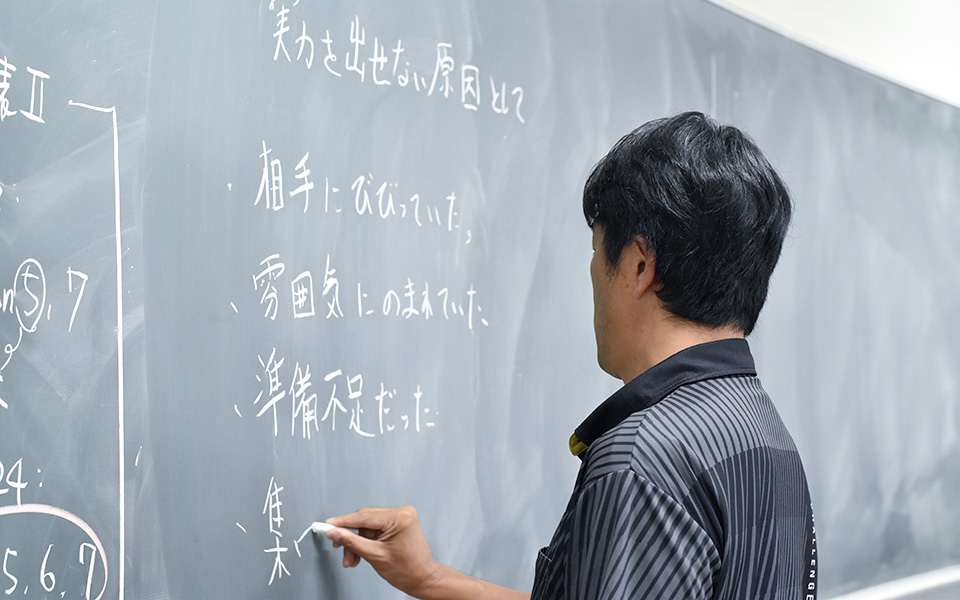 表Ⅱ
⑤, 7
24:
5, 6, 7
実力を出せない原因として
・相手にびびっていた、
、雰囲気にのまれていた、
、準備不足だった
、集
HALLENGE